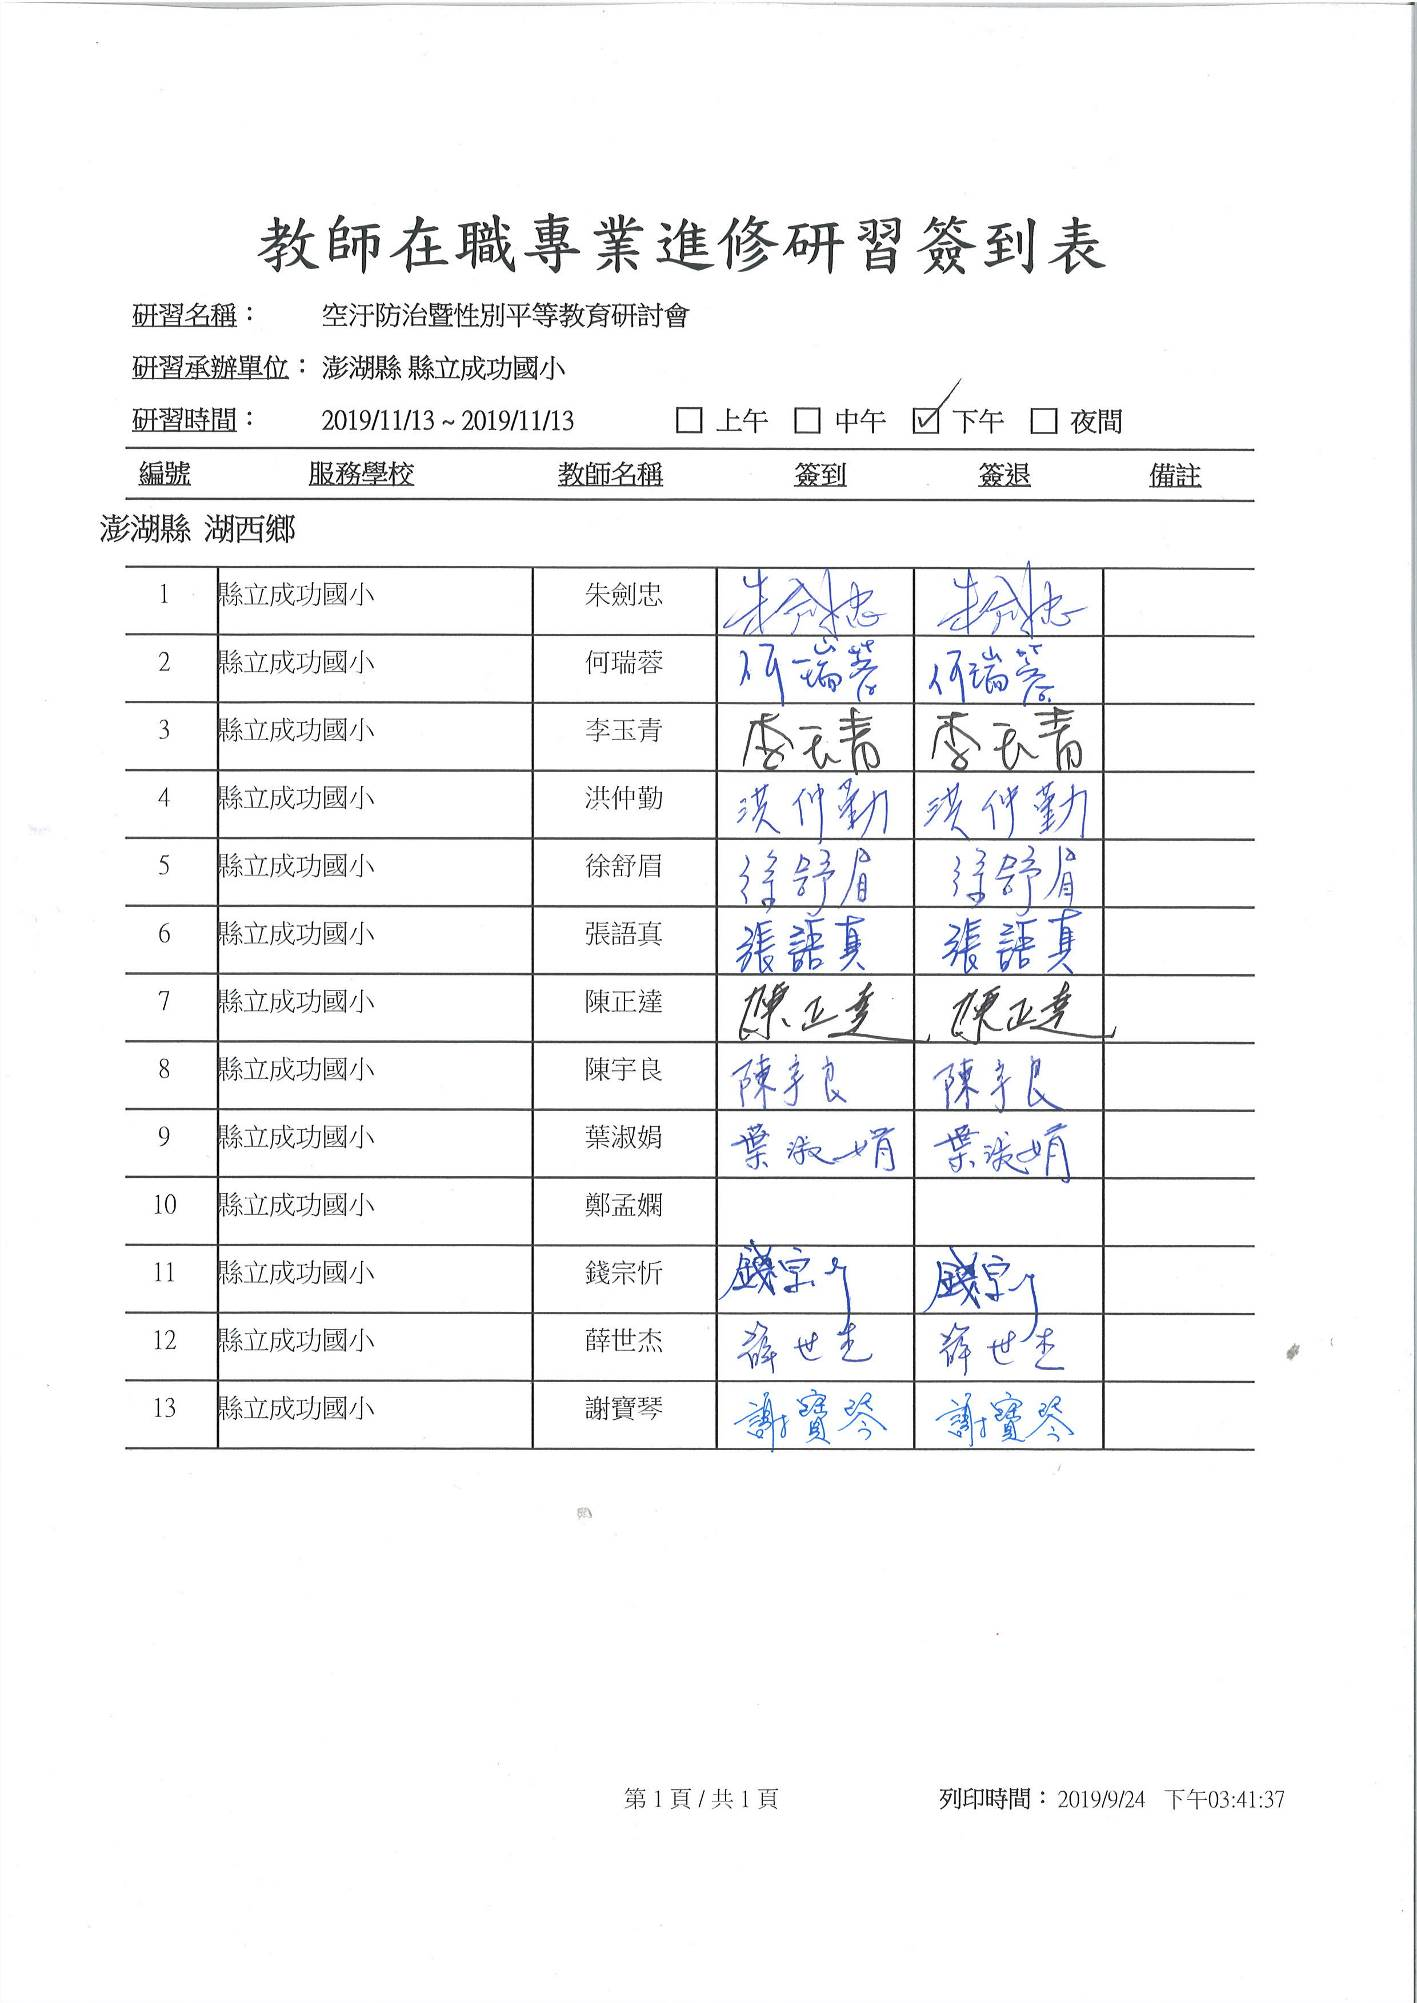 教師在職專業進修研習簽到表
研習名稱： 空汙防治暨性別平等教育研討會
研習承辦單位： 澎湖縣 縣立成功國小
研習時間： 2019/11/13 ~ 2019/11/13 □ 上午 □ 中午 ☑ 下午 □ 夜間
編號 服務學校 教師名稱 簽到 簽退 備註
澎湖縣 湖西鄉
1 縣立成功國小 朱劍忠 朱劍忠 朱劍忠
2 縣立成功國小 何瑞蓉 何瑞蓉 何瑞蓉
3 縣立成功國小 李玉青 李玉青 李玉青
4 縣立成功國小 洪仲勤 洪仲勤 洪仲勤
5 縣立成功國小 徐舒眉 徐舒眉 徐舒眉
6 縣立成功國小 張語真 張語真 張語真
7 縣立成功國小 陳正達 陳正達 陳正達
8 縣立成功國小 陳宇良 陳宇良 陳宇良
9 縣立成功國小 葉淑娟 葉淑娟 葉淑娟
10 縣立成功國小 鄭孟嫻
11 縣立成功國小 錢宗忻 錢宗忻 錢宗忻
12 縣立成功國小 薛世杰 薛世杰 薛世杰
13 縣立成功國小 謝寶琴 謝寶琴 謝寶琴
第 1 頁 / 共 1 頁 列印時間： 2019/9/24 下午03:41:37